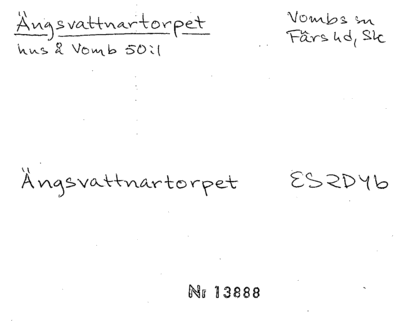 Ängsvattnartorpet Vombs sn
hus å Vomb 50:1 Färs hd, Sk
Ängsvattnartorpet ES2D4b
Nr 13888